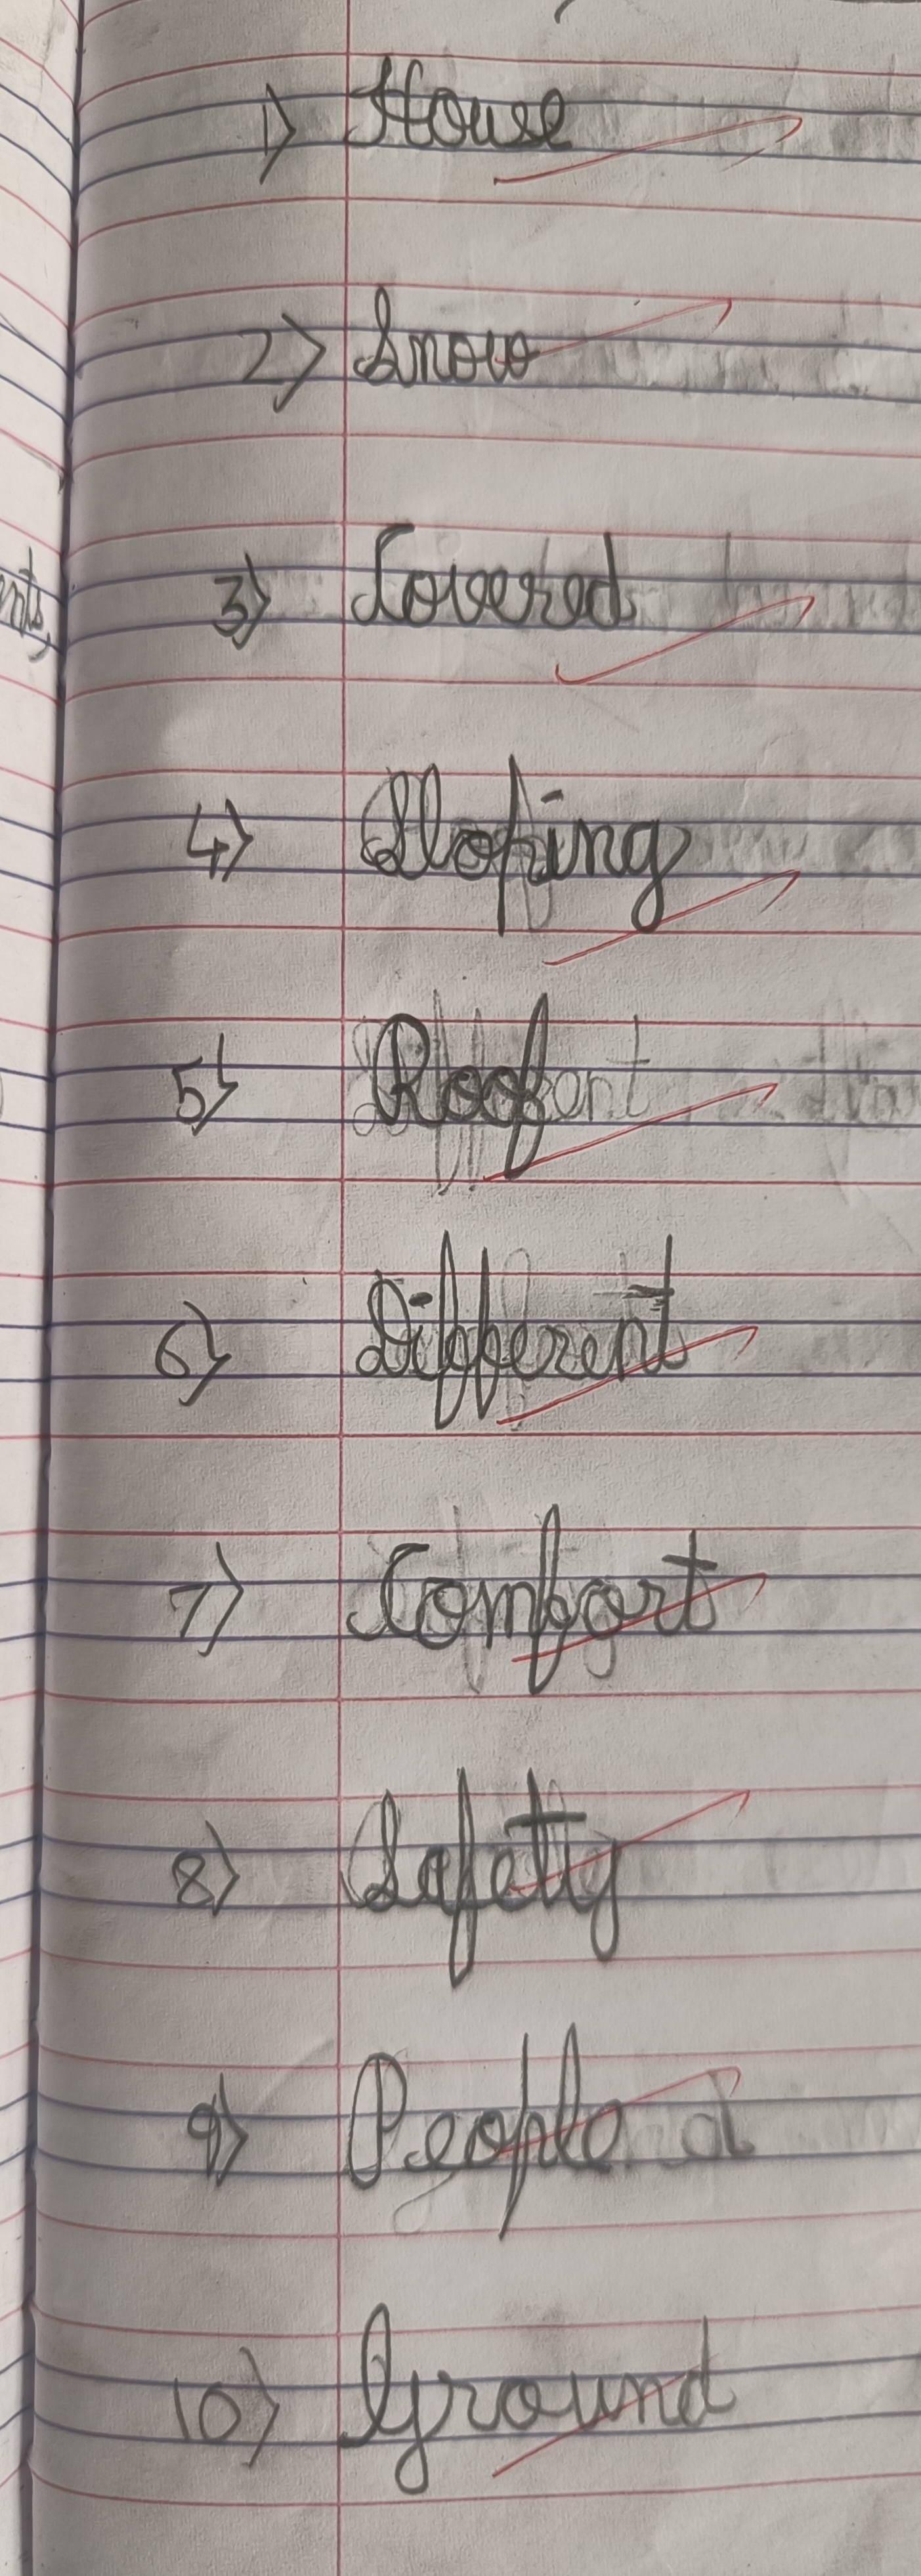 1) House
2) Snow
3) Covered
4) Sloping
5) Roof
6) Different
7) Comfort
8) Safetty
9) People
10) Ground